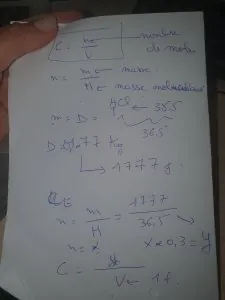 C = n/V ← nombre
de mole
n = m ← masse
M ← masse moléculaire
HCl ← 35.5
m = D = 1 36.5
1.77 kg
↳ 1777 g.
n = m/M = 1777/36,5
n = x x × 0,3 = y
C = V ← 1 l.